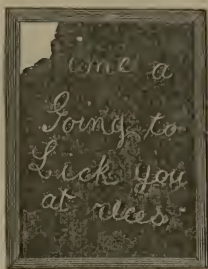 ime a
Going to
Lick you
at reces